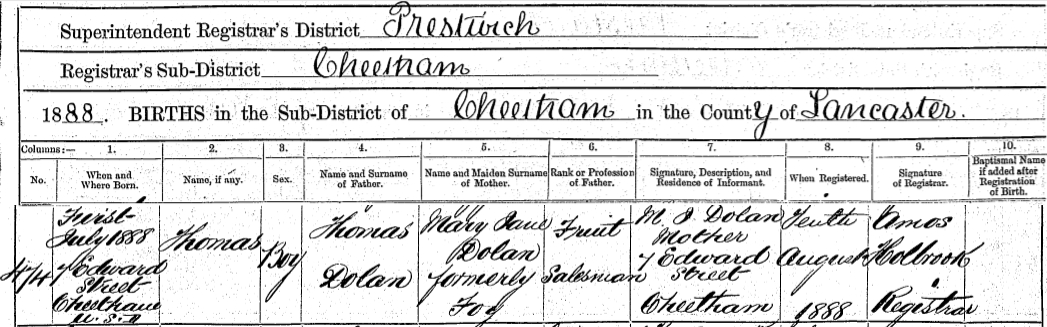 Superintendent Registrar's District Prestwich
Registrar's Sub-District Cheetham
1888. BIRTHS in the Sub-District of Cheetham in the County of Lancaster.
Columns:— 1. 2. 3. 4. 5. 6. 7. 8. 9. 10.
No. When and Where Born. Name, if any. Sex. Name and Surname of Father. Name and Maiden Surname of Mother. Rank or Profession of Father. Signature, Description, and Residence of Informant. When Registered. Signature of Registrar. Baptismal Name if added after Registration of Birth.
474
First
July 1888
7 Edward
Street
Cheetham
U.S.D
Thomas
Boy
Thomas
Dolan
Mary Jane
Dolan
formerly
Foy
Fruit
Salesman
M. J. Dolan
Mother
7 Edward
Street
Cheetham
Tenth
August
1888
Amos
Holbrook
Registrar